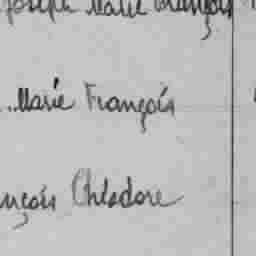 Joseph Marie François
Marie François
nçois Chéodore